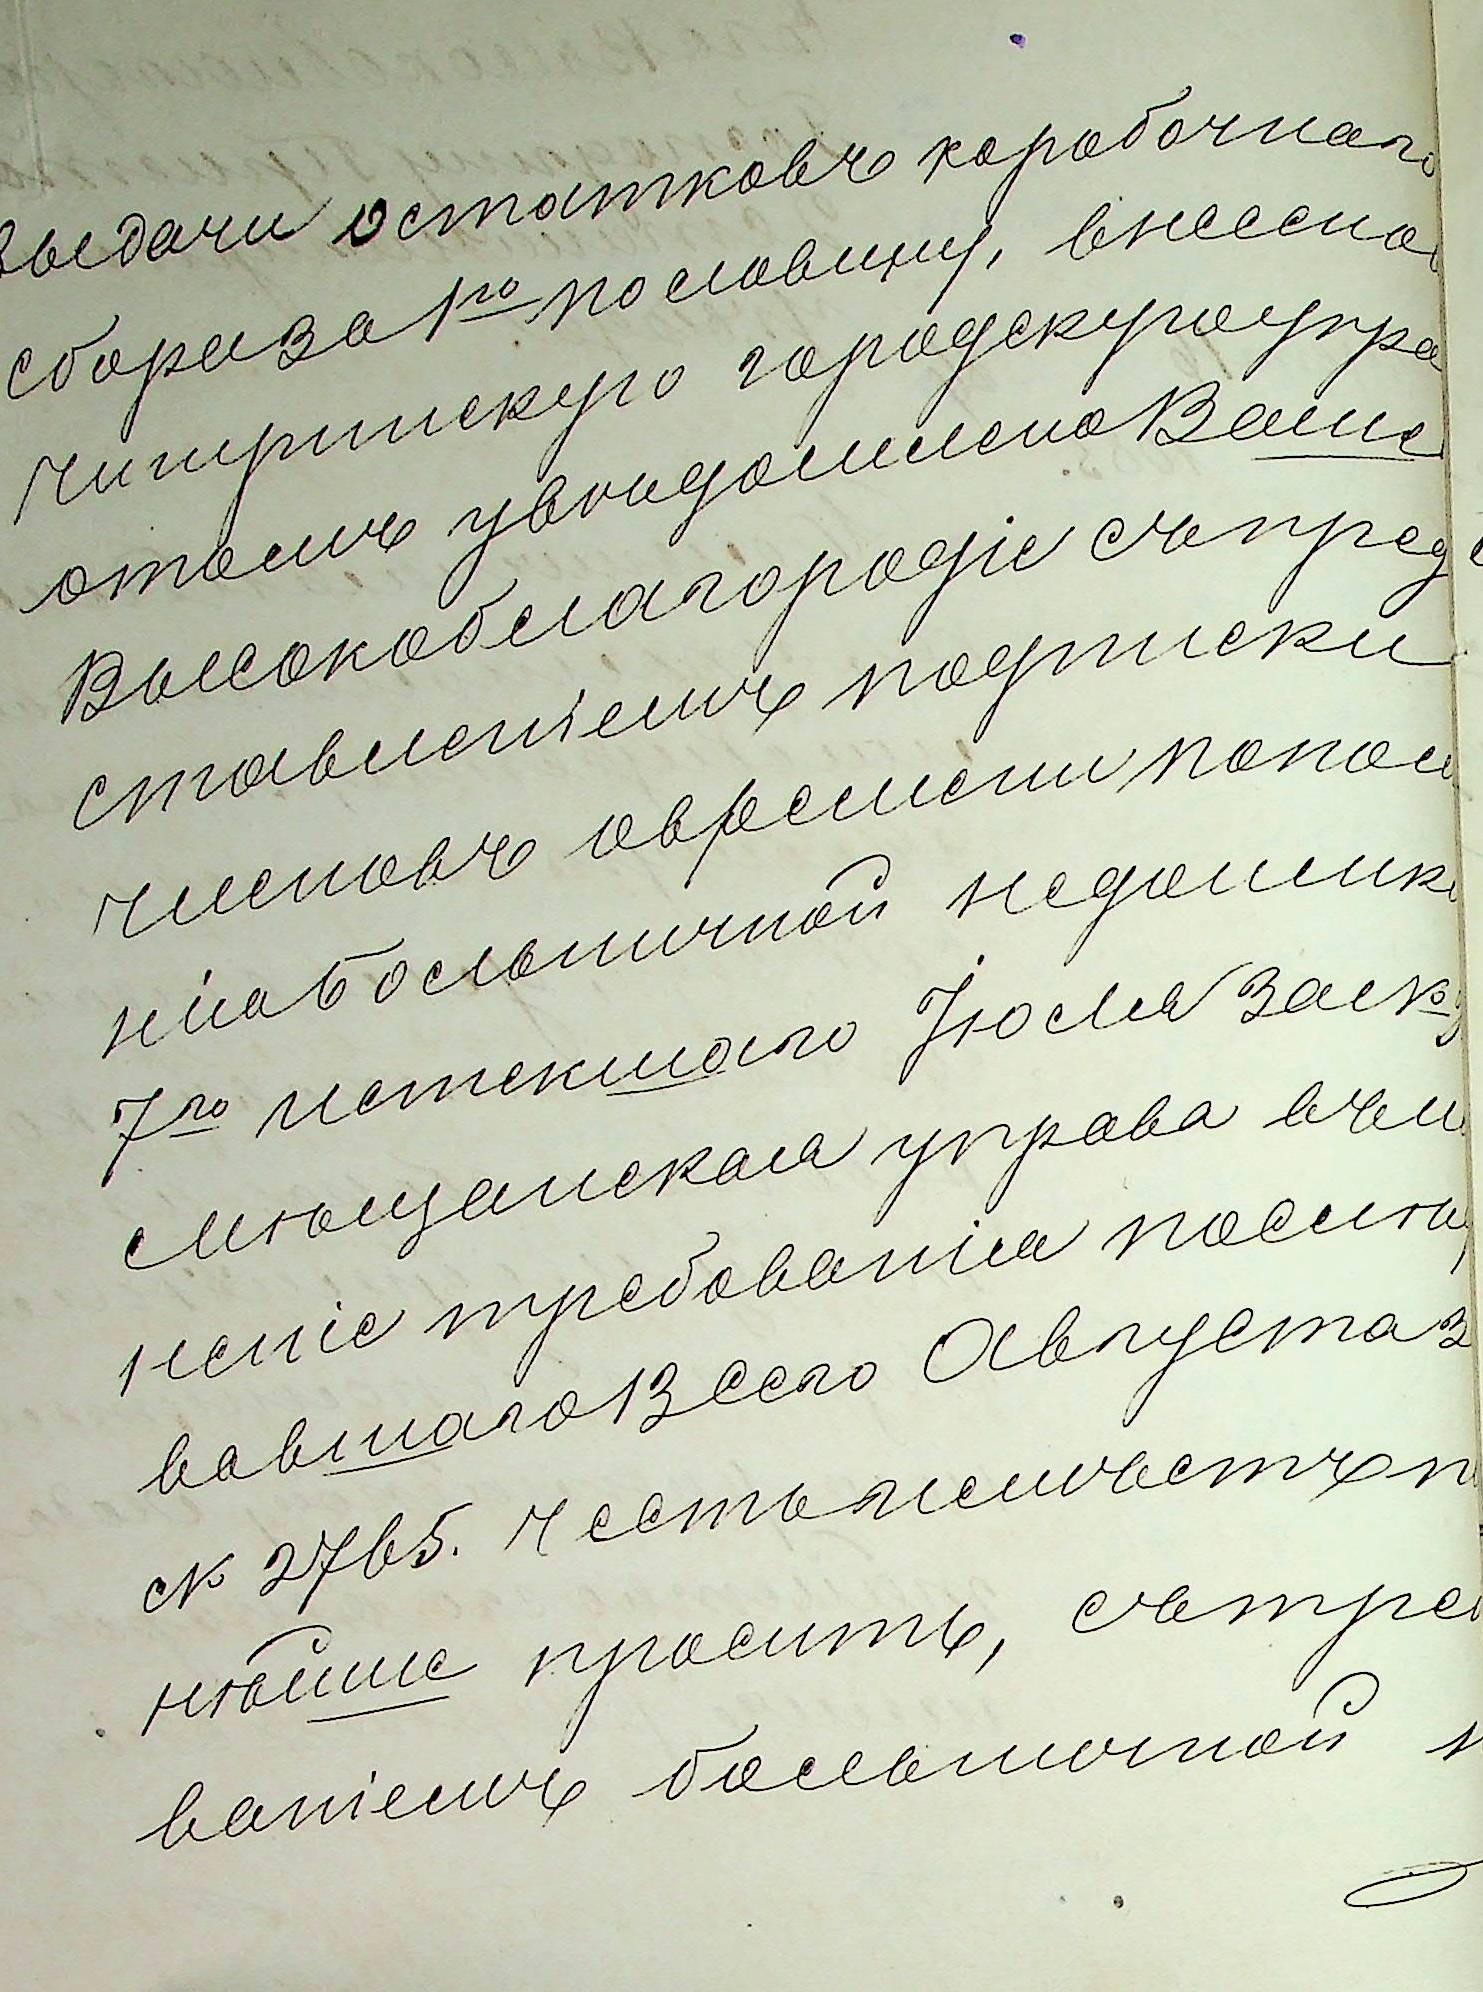 выдачи остатковъ коробочнаго
сбора за 1го половину, внесена
Чигиринскую городскую упра
о томъ увѣдомлено Ваше
Высокоблагородіе съ пред
ставленіемъ подписки
членовъ о времени попол
нія больничной недоимк
7го истекшаго Іюля за №
мѣщанская управа въ и
неніе требованія послѣд
вавшаго 13 сего Августа з
№ 2765. честь имѣетъ п
нѣйше просить, съ тре
ваніемъ больничной н